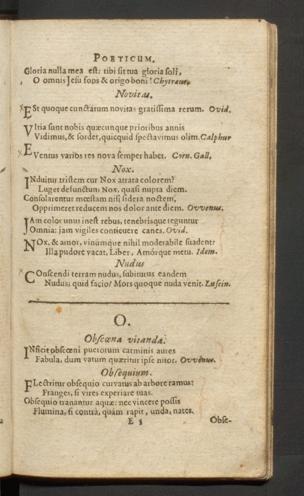 POETICUM.
Gloria nulla mea est: tibi sit tua gloria soli,
O omnis Jesu fons & origo boni! Chytraeus.
Novitas.
ESt quoque cunctarum novitas gratissima rerum. Ovid.
Vltia sunt nobis quæcunque prioribus annis
Vidimus, & sordet, quicquid spectavimus olim. Calphur
EVentus varios res nova semper habet. Corn. Gall.
Nox.
INduitur tristem cur Nox atrata colorem?
Luget defunctum Nox, quasi nupta diem.
Consolarentur mœstam nisi sidera noctem,
Opprimeret reducem nos dolor ante diem. Ovvenus.
JAm color unus inest rebus, tenebrisque teguntur
Omnia: jam vigiles conticuere canes. Ovid.
NOx, & amor, vinumque nihil moderabile suadent:
Illa pudore vacat, Liber, Amórque metu. Idem.
Nudus
COnscendi terram nudus, subiturus eandem
Nudus; quid facio? Mors quoque nuda venit. Eusein.
O.
Obscœna vitanda.
INficit obscœni puerorum carminis aures
Fabula, dum vatum quæritur ipse nitor. Ovvenus.
Obsequium.
FLectitur obsequio curvatus ab arbore ramus:
Franges, si vires experiare tuas.
Obsequio tranantur aquæ: nec vincere possis
Flumina, si contrà, quàm rapit, unda, nates.
E 5
Obse-